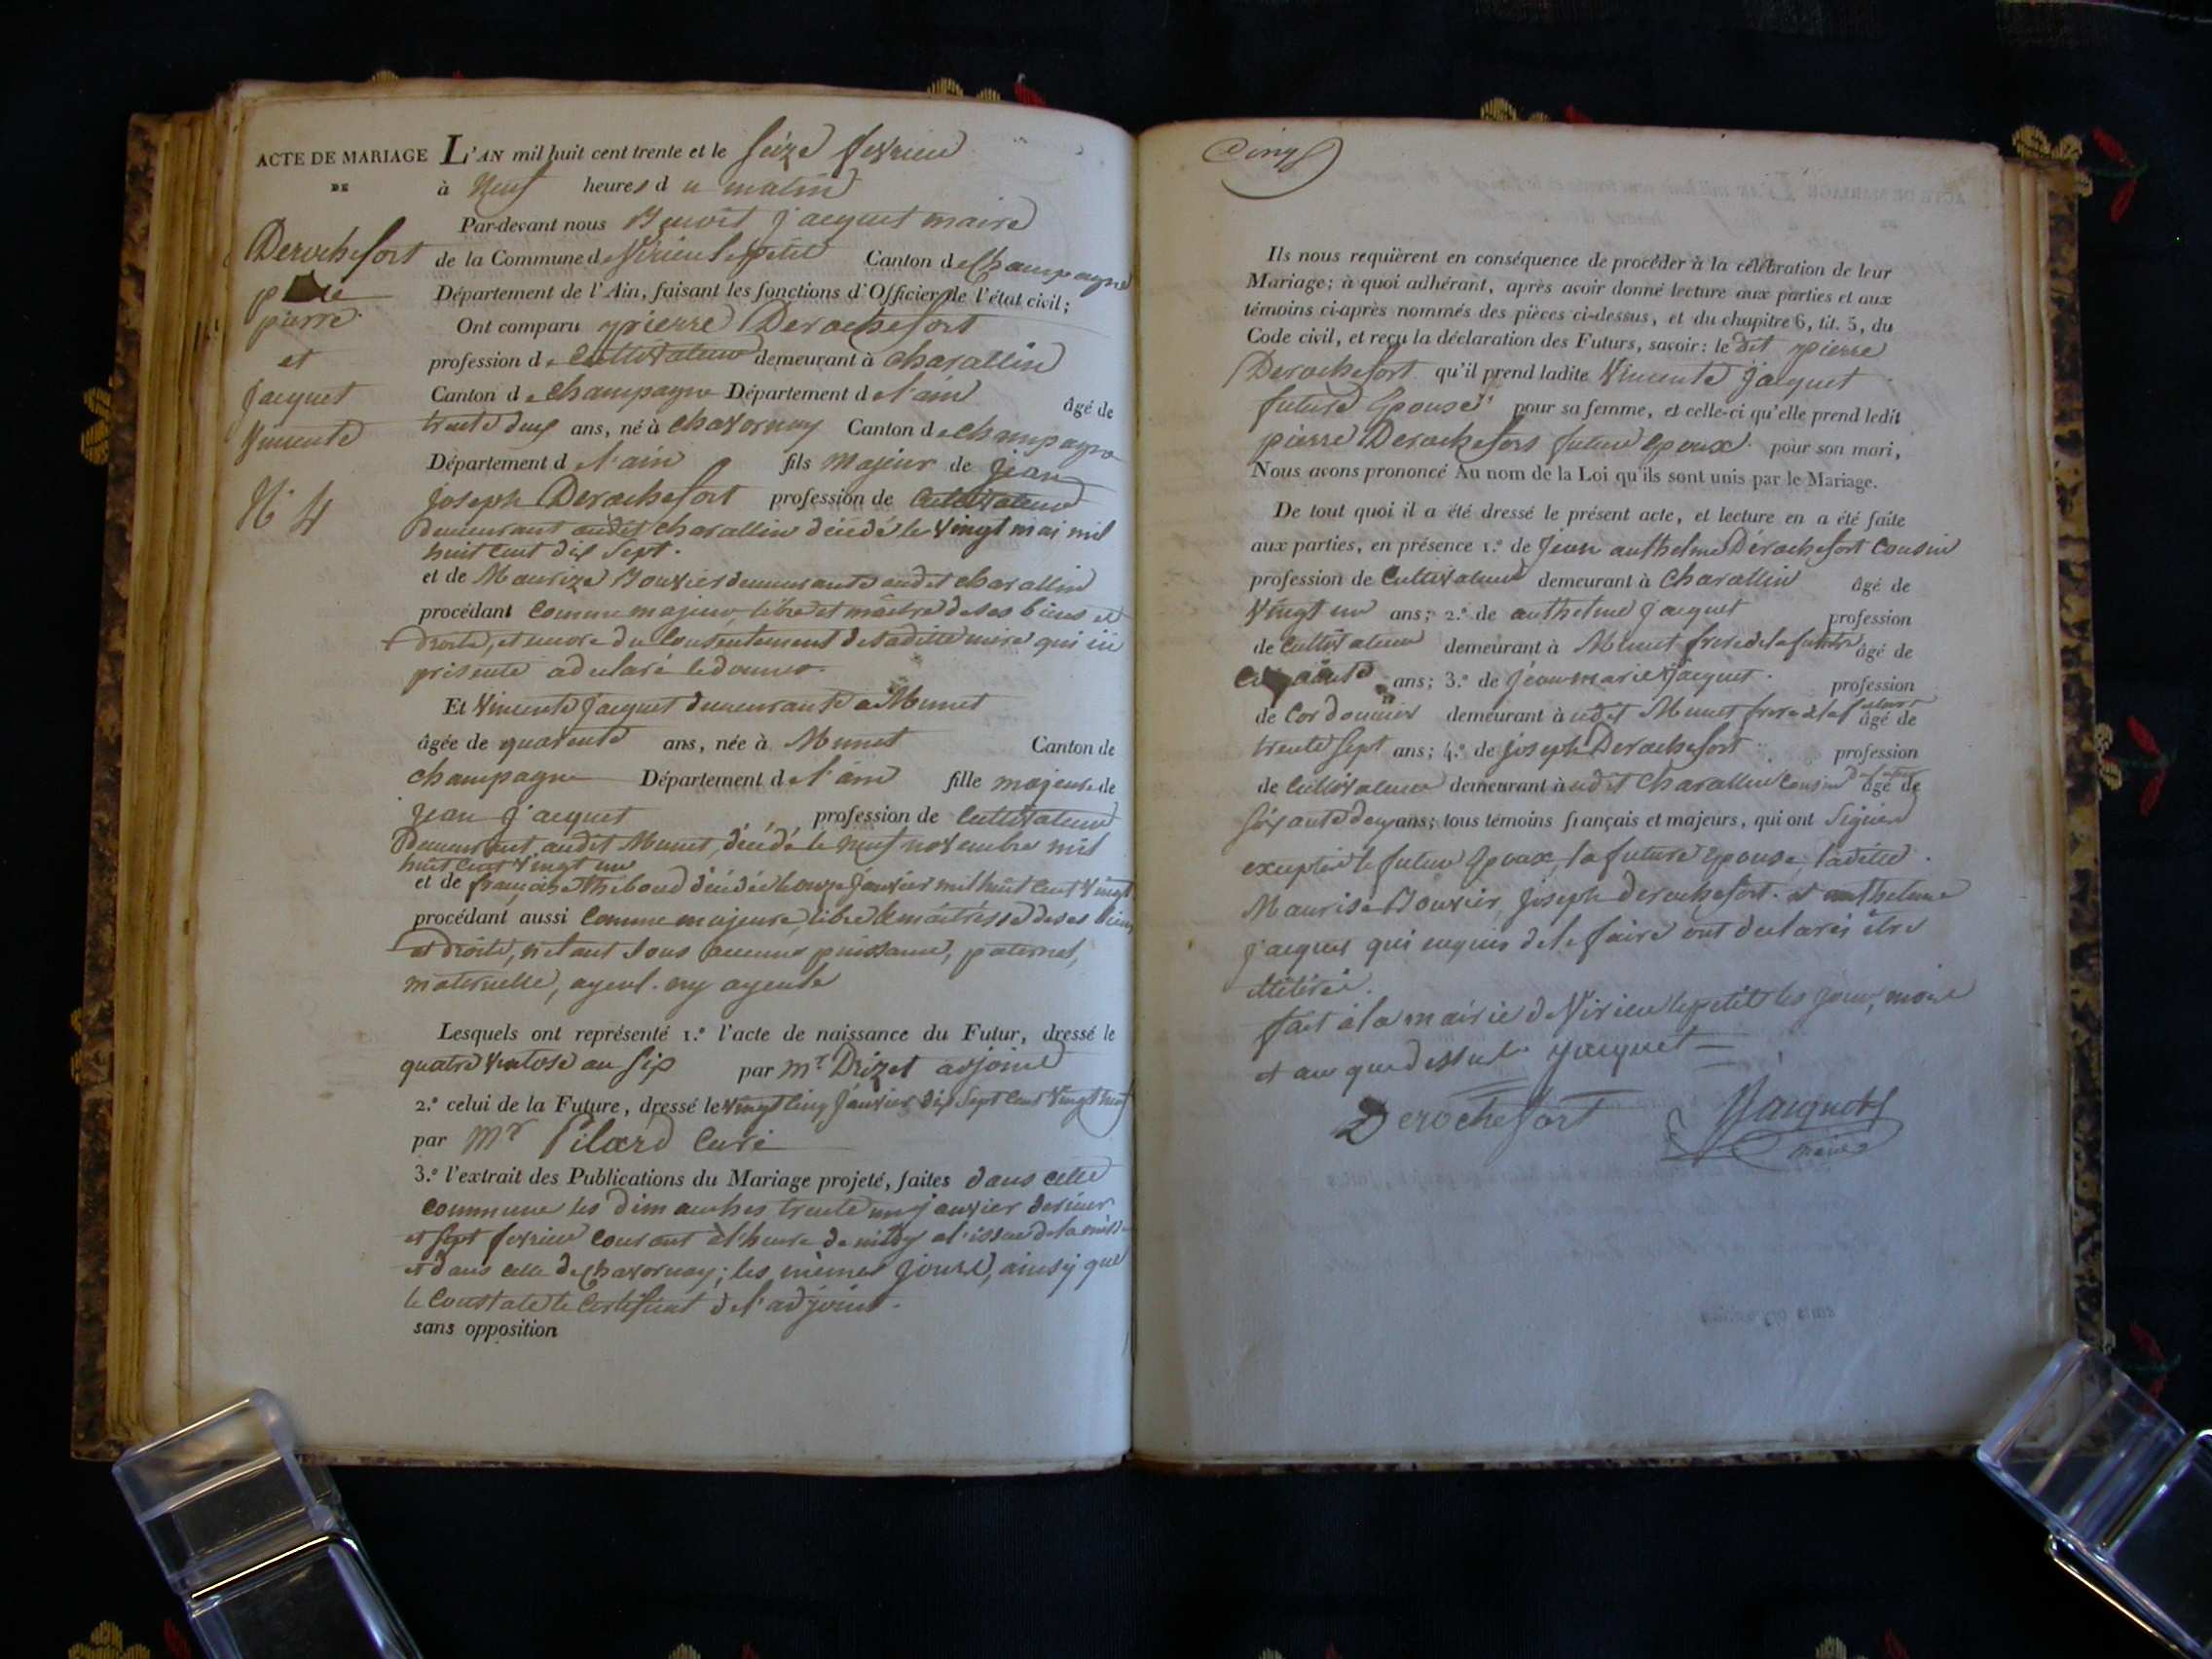 ACTE DE MARIAGE L'AN mil huit cent trente et le Seize fevrier
DE à Neuf heures du matin
Par-devant nous Benoit jacquet maire
Derochefort de la Commune de Virieu le petit Canton de Champagne
pierre Département de l'Ain, faisant les fonctions d'Officier de l'état civil;
Ont comparu pierre Derochefort
et profession de Cultivateur demeurant à charallin
Jacquet Canton de Champagne Département de l'ain âgé de
Vincente trente deux ans, né à chavornay Canton de champagne
Département de l'ain fils Majeur de jean
N.° 4 joseph Derochefort profession de Cultivateur
Demeurant audit charallin décédé le vingt mai mil
huit cent dix sept.
et de Maurize Bouvier demeurante audit charallin
procédant comme majeur, libre et maître de ses biens et
droits, et encore du Consentement de sadite mère qui ici
présente a déclaré le donner.
Et Vincente Jacquet demeurante à Munet
âgée de quarente ans, née à Munet Canton de
champagne Département de l'ain fille majeure de
Jean jacquet profession de Cultivateur
Demeurant audit Munet, décédé le neuf novembre mil
huit cent vingt un
et de françoise Theboud décédée le onze janvier mil huit cent vingt
procédant aussi Comme majeure, libre & maitresse de ses biens
et droits, n'etant sous aucune puissance, paternel,
maternelle, ayeul. ny ayeule
Lesquels ont représenté 1.° l'acte de naissance du Futur, dressé le
quatre ventose an six par mr Drizet adjoint
2.° celui de la Future, dressé le vingt cinq janvier dix sept cent vingt neuf
par Mr Pilard Curé
3.° l'extrait des Publications du Mariage projeté, faites dans cette
commune les dimanches trente un janvier dernier
et sept fevrier courant à l'heure de midy a l'issue de la messe
et dans celle de chavornay; les mèmes jours, ainsy que
le Constate le Certificat de l'adjoint.
sans opposition
Cinq
Ils nous requièrent en conséquence de procéder à la célébration de leur
Mariage; à quoi adhérant, après avoir donné lecture aux parties et aux
témoins ci-après nommés des pièces ci-dessus, et du chapitre 6, tit. 5, du
Code civil, et reçu la déclaration des Futurs, savoir: le dit pierre
Derochefort qu'il prend ladite Vincente jacquet
future Epouse pour sa femme, et celle-ci qu'elle prend ledit
pierre Derochefort futur Epoux pour son mari,
Nous avons prononcé Au nom de la Loi qu'ils sont unis par le Mariage.
De tout quoi il a été dressé le présent acte, et lecture en a été faite
aux parties, en présence 1.° de Jean anthelme Dérochefort Cousin
profession de Cultivateur demeurant à Charallin âgé de
Vingt un ans; 2.° de anthelme jacquet profession
de Cultivateur demeurant à Munet frere de la future âgé de
ans; 3.° de Jean-marie jacquet. profession
de Cordonnier demeurant à udit Munet frere de la future âgé de
trente sept ans; 4.° de joseph Derochefort profession
de Cultivateur demeurant à udit Charallin Cousin du futur âgé de
soixante deux ans; tous témoins français et majeurs, qui ont Signer
excepter le futur Epoux, la future Epouse, ladite
Maurise Bouvier, joseph derochefort. et anthelme
jacquet qui enquis de le faire ont declarés être
illitérés.
fait à la mairie de Virieu le petit les jour, mois
et an que dessus. jacquet
Derochefort Jacquet
maire